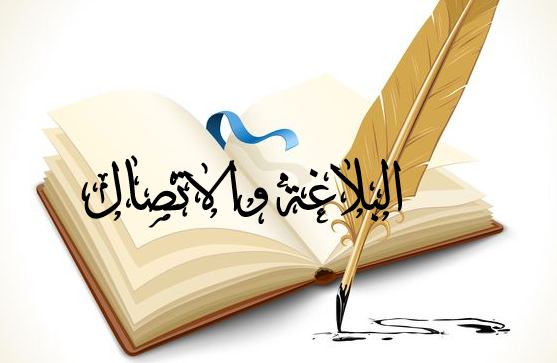 البلاغة والاتصال